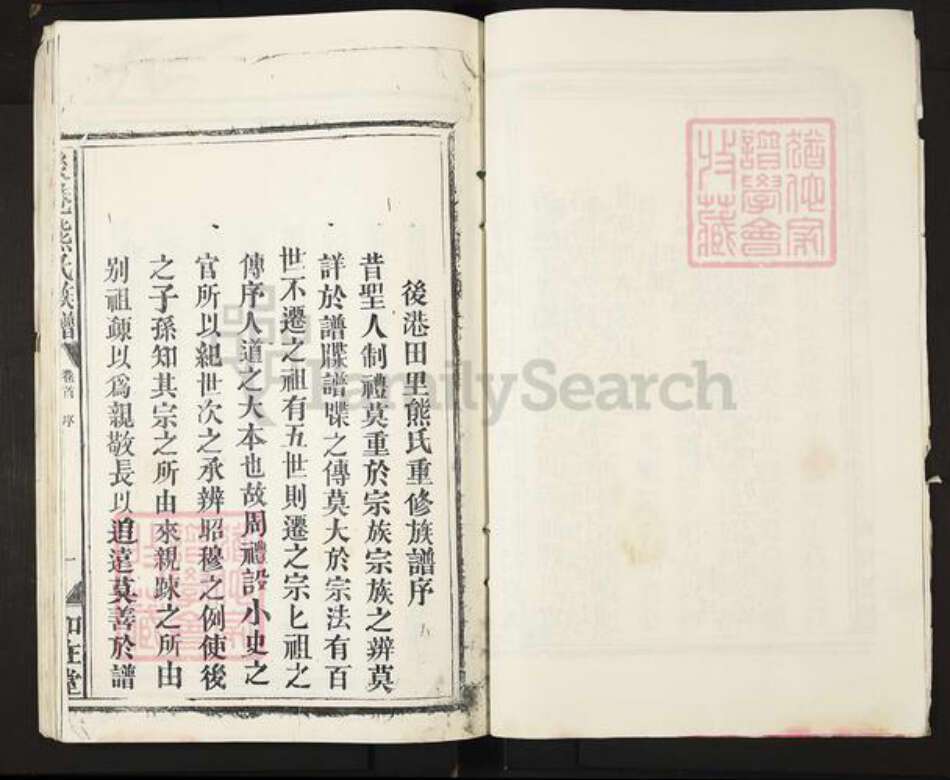 後港田里熊氏重修族譜序
昔聖人制禮莫重於宗族宗族之辨莫
詳於譜牒譜牒之傳莫大於宗法有百
世不遷之祖有五世則遷之宗匕祖之
傳序人道之大本也故周禮設小史之
官所以紀世次之承辨昭穆之例使後
之子孫知其宗之所由來親踈之所由
别祖踈以爲親敬長以追遠莫善於譜
熊氏族譜
卷首 序
一
FamilySearch
譜學會
收藏